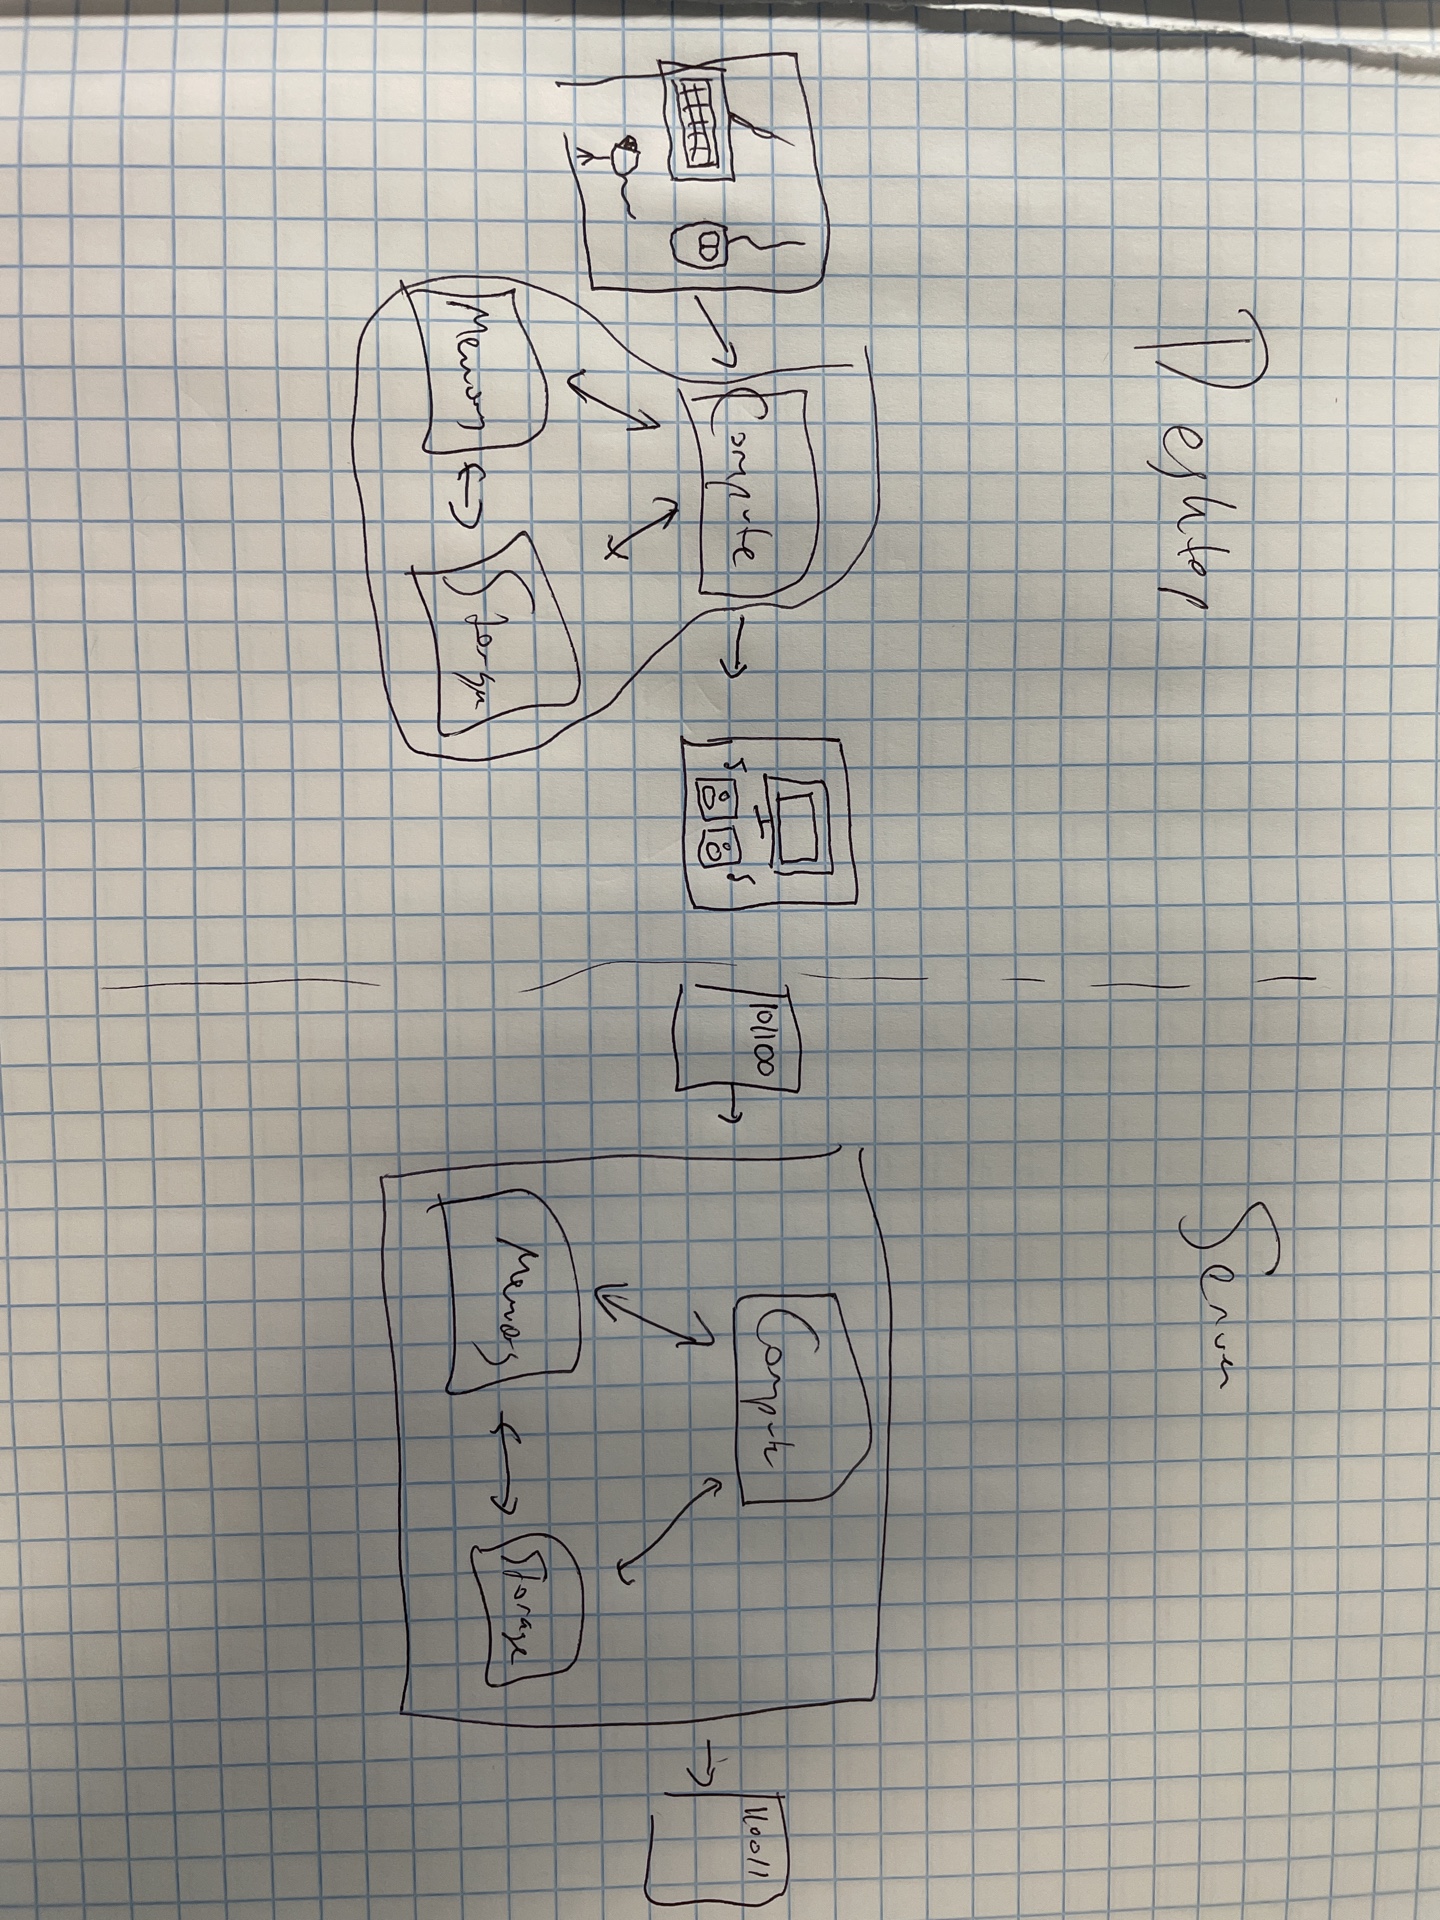 Desktop
Compute
Memory
Storage
101100
Server
Compute
Memory
Storage
110011